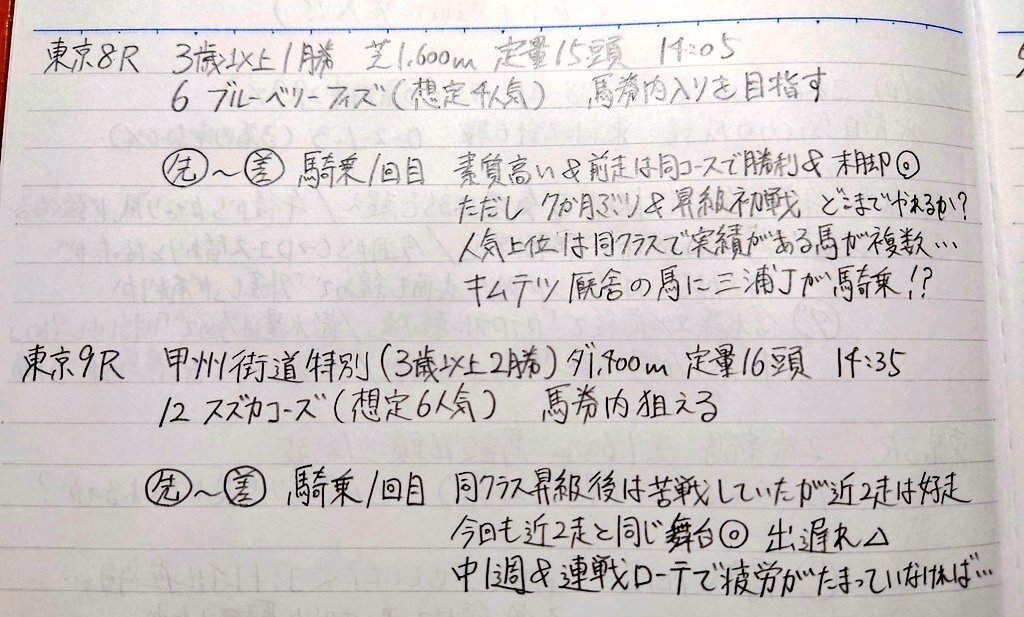 東京8R 3歳以上1勝 芝1,600m 定量15頭 14:05
6 ブルーベリーフィズ(想定4人気) 馬券内入りを目指す
先〜差 騎乗/1回目 素質高い&前走は同コースで勝利&末脚◎
ただし7か月ぶり&昇級初戦 どこまでやれるか?
人気上位は同クラスで実績がある馬が複数…
キムテツ厩舎の馬に三浦Jが騎乗!?
東京9R 甲州街道特別(3歳以上2勝)ダ1,400m 定量16頭 14:35
12 スズカコーズ(想定6人気) 馬券内狙える
先〜差 騎乗/1回目 同クラス昇級後は苦戦していたが近2走は好走
今回も近2走と同じ舞台◎ 出遅れ△
中1週&連戦ローテで疲労がたまっていなければ…